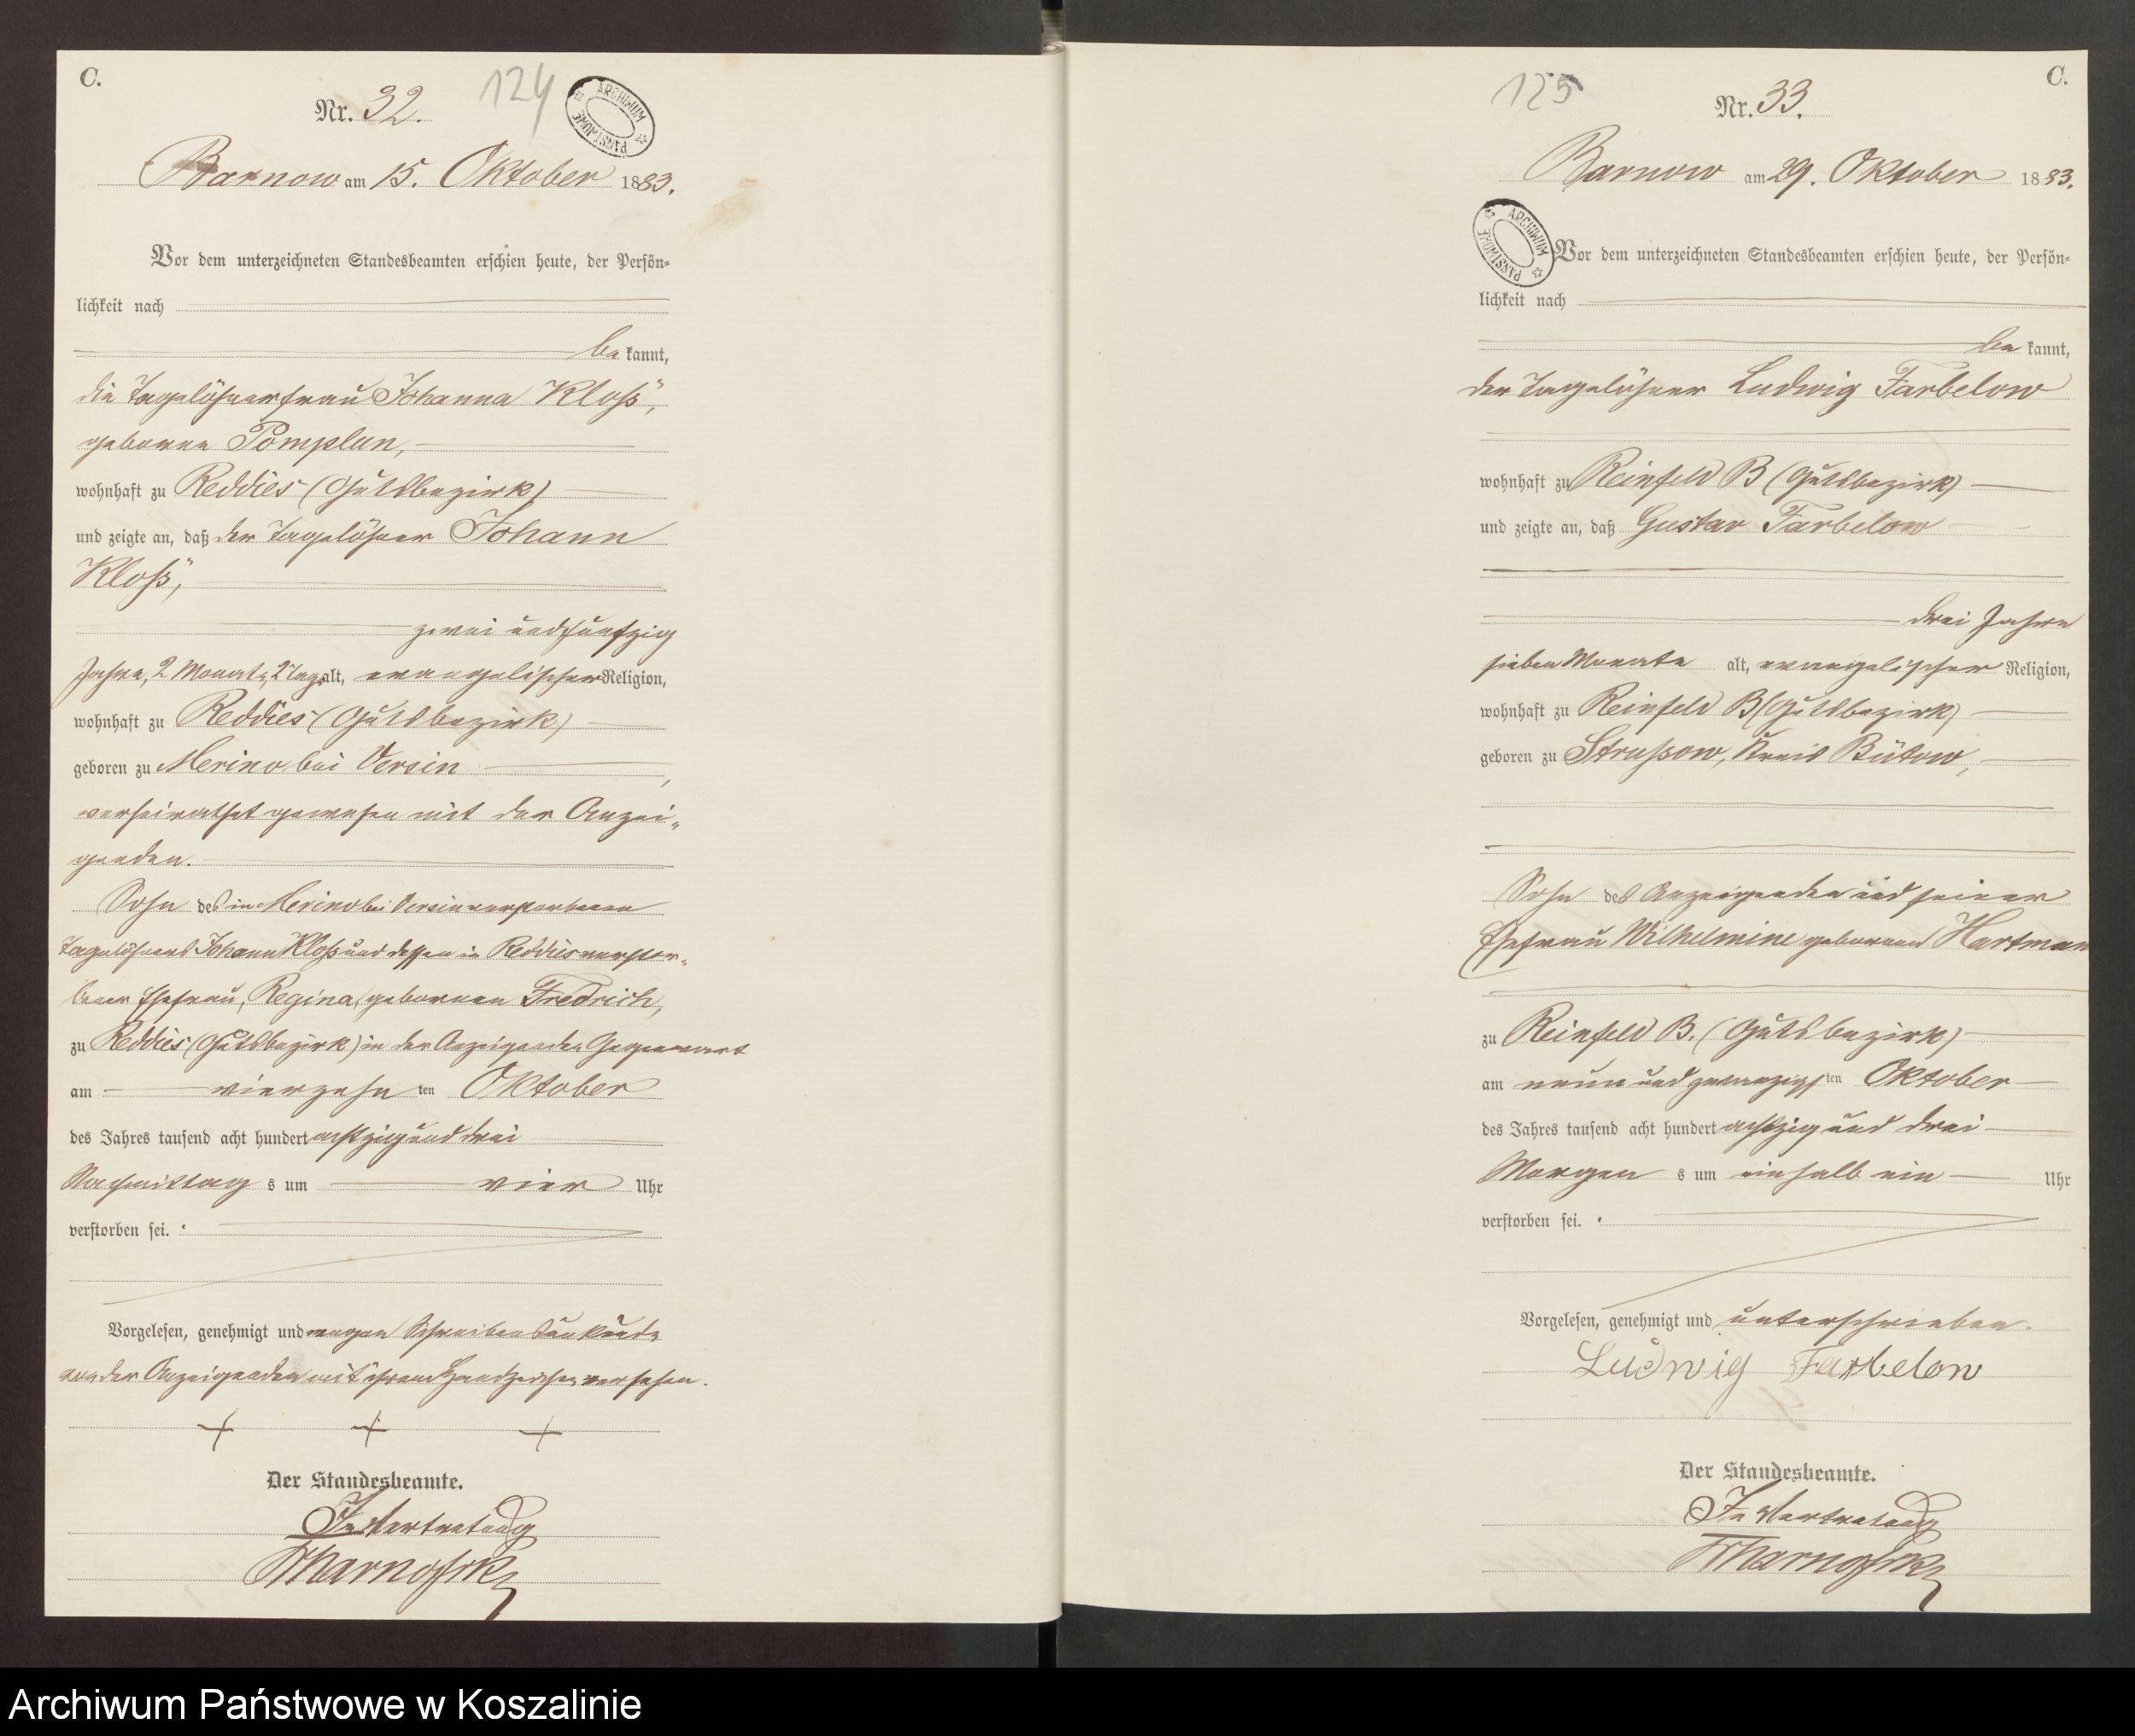 C.
Nr. 32.
124
ARCHIWUM PAŃSTWOWE
Barnow am 15. Oktober 1883.
Vor dem unterzeichneten Standesbeamten erschien heute, der Persön-
lichkeit nach
be kannt,
die Tagelöhnerfrau Johanna Kloß,
geborne Pomplun,
wohnhaft zu Reddies (Gutsbezirk)
und zeigte an, daß der Tagelöhner Johann
Kloß,
zwei und fünfzig
Jahre, 2 Monate, 2 Tage alt, evangelischer Religion,
wohnhaft zu Reddies (Gutsbezirk)
geboren zu Merino bei Versin,
verheirathet gewesen mit der Anzei-
genden.
Sohn des in Merino bei Versin verstorbenen
Tagelöhners Johann Kloß und dessen in Reddies verstor-
bener Ehefrau, Regina, gebornen Fredrich,
zu Reddies (Gutsbezirk) in der Anzeigenden Gegenwart
am vierzehn ten Oktober
des Jahres tausend acht hundert achtzig und drei
Nachmittag s um vier Uhr
verstorben sei.
Vorgelesen, genehmigt und wegen Schreibensunkunde
von der Anzeigenden mit ihrem Handzeichen versehen.
+ + +
Der Standesbeamte.
In Vertretung
C.
125
Nr. 33.
Barnow am 29. Oktober 1883.
ARCHIWUM PAŃSTWOWE
Vor dem unterzeichneten Standesbeamten erschien heute, der Persön-
lichkeit nach
be kannt,
der Tagelöhner Ludwig Farbelow
wohnhaft zu Reinfeld B (Gutsbezirk)
und zeigte an, daß Gustav Farbelow
drei Jahre
sieben Monate alt, evangelischer Religion,
wohnhaft zu Reinfeld B (Gutsbezirk)
geboren zu Strussow, Kreis Bütow,
Sohn des Anzeigenden und seiner
Ehefrau Wilhelmine gebornen Hartman
zu Reinfeld B. (Gutsbezirk)
am neun und zwanzigs ten Oktober
des Jahres tausend acht hundert achtzig und drei
Morgen s um einhalb ein Uhr
verstorben sei.
Vorgelesen, genehmigt und unterschrieben.
Ludwig Farbelow
Der Standesbeamte.
In Vertretung
Archiwum Państwowe w Koszalinie